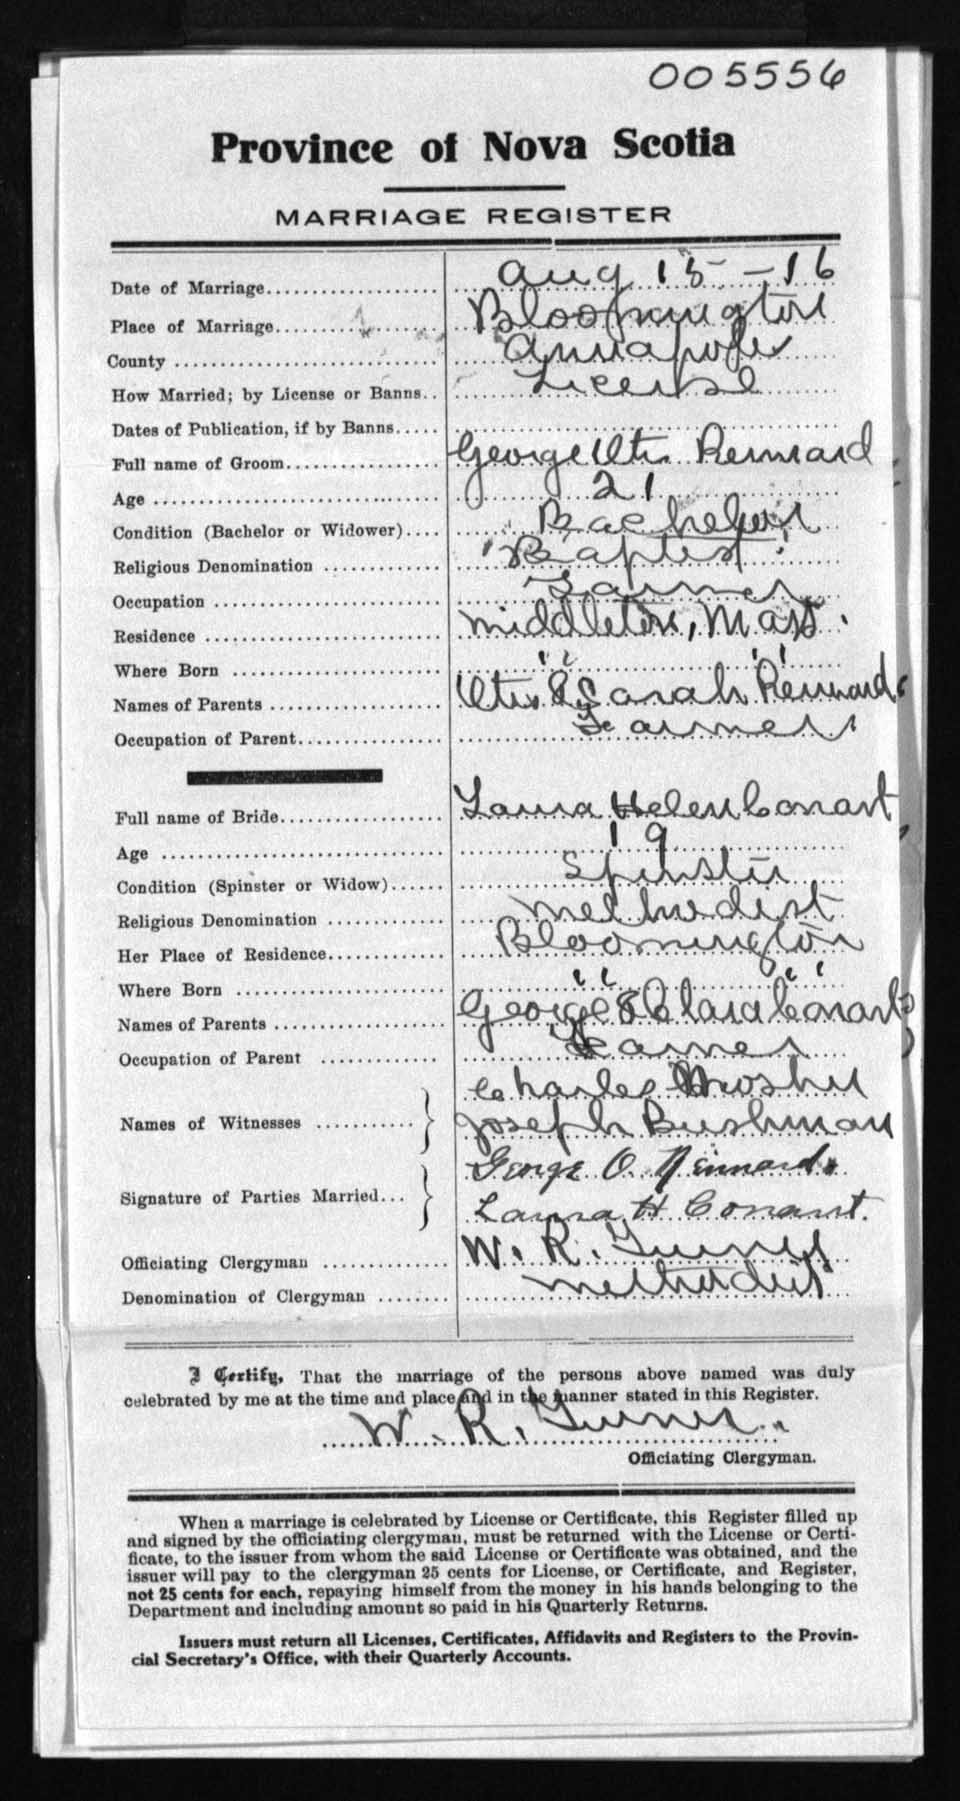 005556
Province of Nova Scotia
MARRIAGE REGISTER
Date of Marriage Aug 15 - 16
Place of Marriage Bloomington
County Annapolis
How Married; by License or Banns License
Dates of Publication, if by Banns
Full name of Groom George Otis Rennard
Age 21
Condition (Bachelor or Widower) Bachelor
Religious Denomination Baptist
Occupation Farmer
Residence Middleton, Mass.
Where Born " "
Names of Parents Otis & Sarah Rennard
Occupation of Parent Farmer
Full name of Bride Laura Helen Conant
Age 19
Condition (Spinster or Widow) Spinster
Religious Denomination Methodist
Her Place of Residence Bloomington
Where Born " "
Names of Parents George & Clara Conant
Occupation of Parent Farmer
Charles
Names of Witnesses Joseph Bushman
George O. Rennard
Signature of Parties Married Laura H Conant.
Officiating Clergyman W. R. Turner
Denomination of Clergyman Methodist
I Certify, That the marriage of the persons above named was duly
celebrated by me at the time and place and in the manner stated in this Register.
W. R. Turner
Officiating Clergyman.
When a marriage is celebrated by License or Certificate, this Register filled up
and signed by the officiating clergyman, must be returned with the License or Certi-
ficate, to the issuer from whom the said License or Certificate was obtained, and the
issuer will pay to the clergyman 25 cents for License, or Certificate, and Register,
not 25 cents for each, repaying himself from the money in his hands belonging to the
Department and including amount so paid in his Quarterly Returns.
Issuers must return all Licenses, Certificates, Affidavits and Registers to the Provin-
cial Secretary's Office, with their Quarterly Accounts.